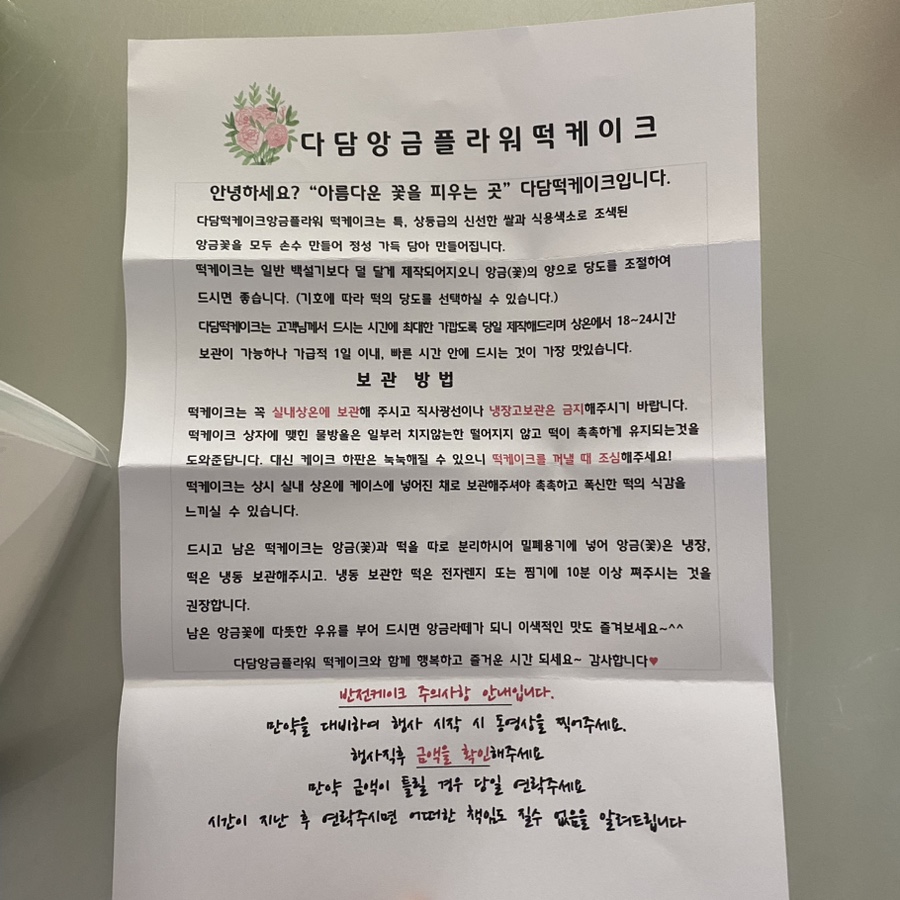 다담앙금플라워떡케이크
안녕하세요? “아름다운 꽃을 피우는 곳” 다담떡케이크입니다.
다담떡케이크앙금플라워 떡케이크는 특, 상등급의 신선한 쌀과 식용색소로 조색된
앙금꽃을 모두 손수 만들어 정성 가득 담아 만들어집니다.
떡케이크는 일반 백설기보다 덜 달게 제작되어지오니 앙금(꽃)의 양으로 당도를 조절하여
드시면 좋습니다. (기호에 따라 떡의 당도를 선택하실 수 있습니다.)
다담떡케이크는 고객님께서 드시는 시간에 최대한 가깝도록 당일 제작해드리며 상온에서 18~24시간
보관이 가능하나 가급적 1일 이내, 빠른 시간 안에 드시는 것이 가장 맛있습니다.
보관 방법
떡케이크는 꼭 실내상온에 보관해 주시고 직사광선이나 냉장고보관은 금지해주시기 바랍니다.
떡케이크 상자에 맺힌 물방울은 일부러 치지않는한 떨어지지 않고 떡이 촉촉하게 유지되는것을
도와준답니다. 대신 케이크 하판은 눅눅해질 수 있으니 떡케이크를 꺼낼 때 조심해주세요!
떡케이크는 상시 실내 상온에 케이스에 넣어진 채로 보관해주셔야 촉촉하고 폭신한 떡의 식감을
느끼실 수 있습니다.
드시고 남은 떡케이크는 앙금(꽃)과 떡을 따로 분리하시어 밀폐용기에 넣어 앙금(꽃)은 냉장,
떡은 냉동 보관해주시고. 냉동 보관한 떡은 전자렌지 또는 찜기에 10분 이상 쪄주시는 것을
권장합니다.
남은 앙금꽃에 따뜻한 우유를 부어 드시면 앙금라떼가 되니 이색적인 맛도 즐겨보세요~^^
다담앙금플라워 떡케이크와 함께 행복하고 즐거운 시간 되세요~ 감사합니다♥
반전케이크 주의사항 안내입니다.
만약을 대비하여 행사 시작 시 동영상을 찍어주세요.
행사직후 금액을 확인해주세요
만약 금액이 틀릴 경우 당일 연락주세요
시간이 지난 후 연락주시면 어떠한 책임도 질수 없음을 알려드립니다